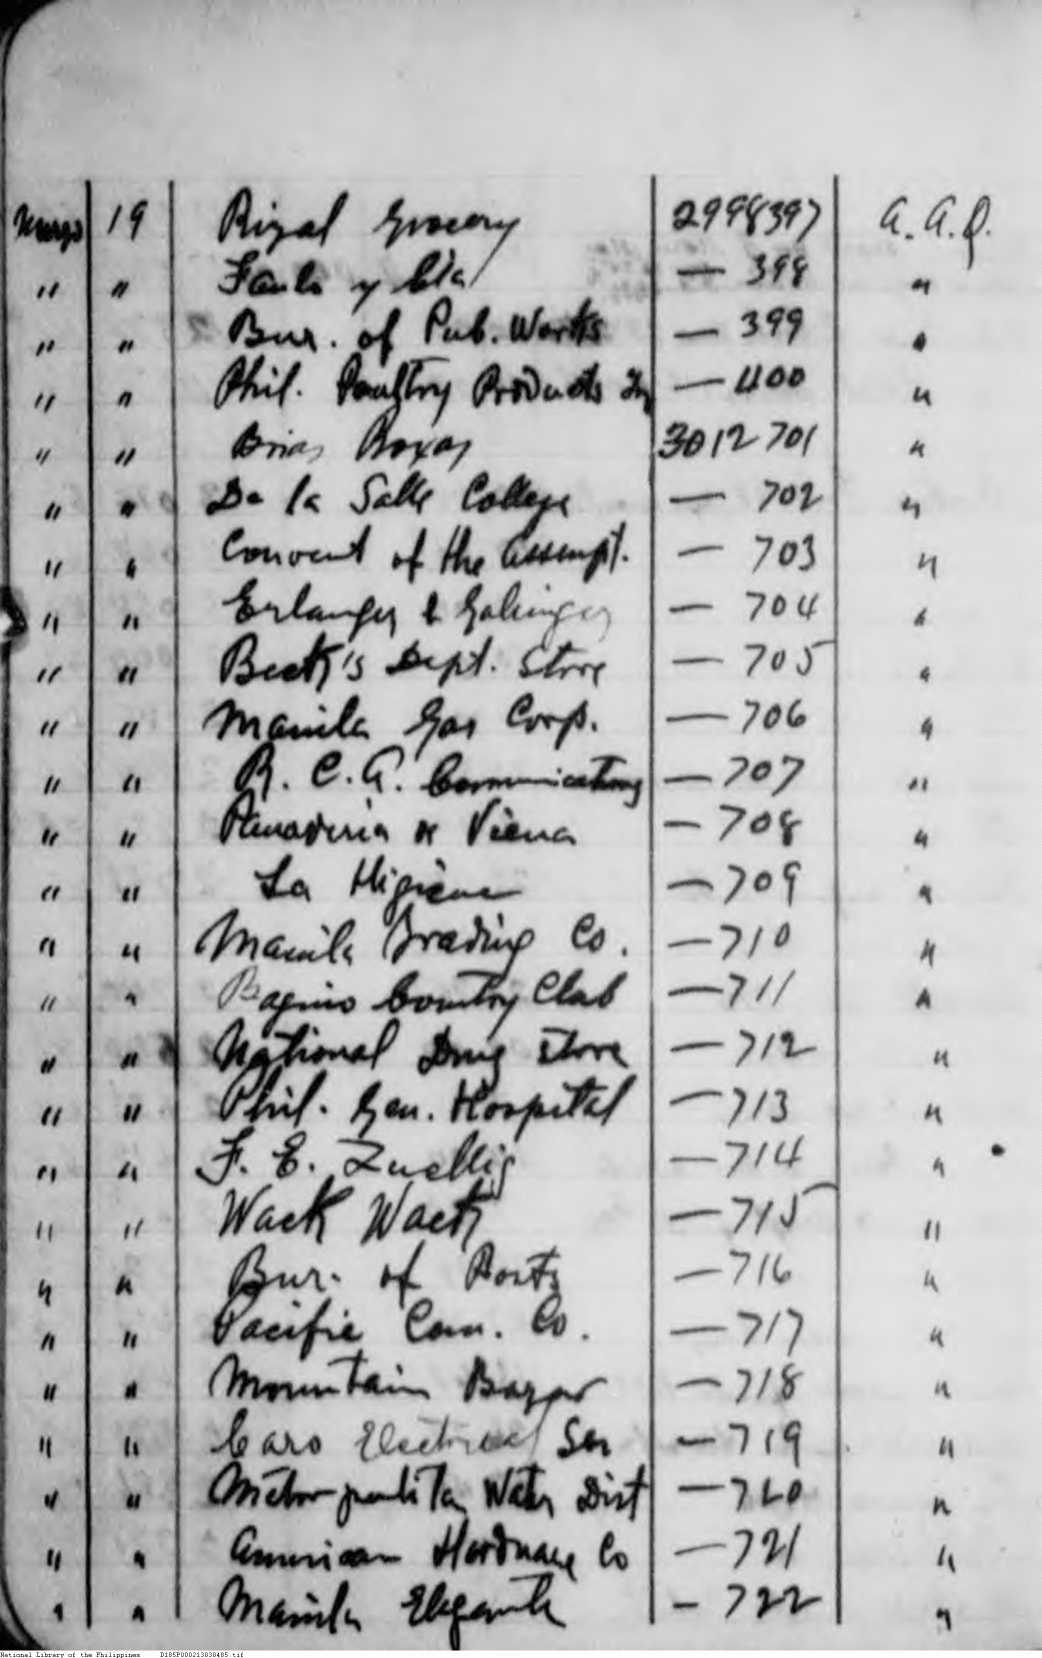 Marzo 19 Rizal Grocery 2998397 A. A. Q.
" " y Cia — 398 "
" " Bur. of Pub. Works — 399 "
" " Phil. Poultry Products — 400 "
" " Brias Roxas 3012701 "
" " De la Salle College — 702 "
" " Convent of the Assumpt. — 703 "
" " Erlanger & Galinger — 704 "
" " Beck's Dept. Store — 705 "
" " Manila Gas Corp. — 706 "
" " R. C. A. Communications — 707 "
" " Panaderia de Viena — 708 "
" " La Higiene — 709 "
" " Manila Trading Co. — 710 "
" " Baguio Country Club — 711 "
" " National Drug Store — 712 "
" " Phil. Gen. Hospital — 713 "
" " F. E. Zuellig — 714 "
" " Wack Wack — 715 "
" " Bur. of Posts — 716 "
" " Pacific Com. Co. — 717 "
" " Mountain Bazar — 718 "
" " Caro Electrical Ser — 719 "
" " Metropolitan Water Dist — 720 "
" " American Hardware Co — 721 "
" " Manila Elegante — 722 "
National Library of the Philippines D185P000213838485.tif